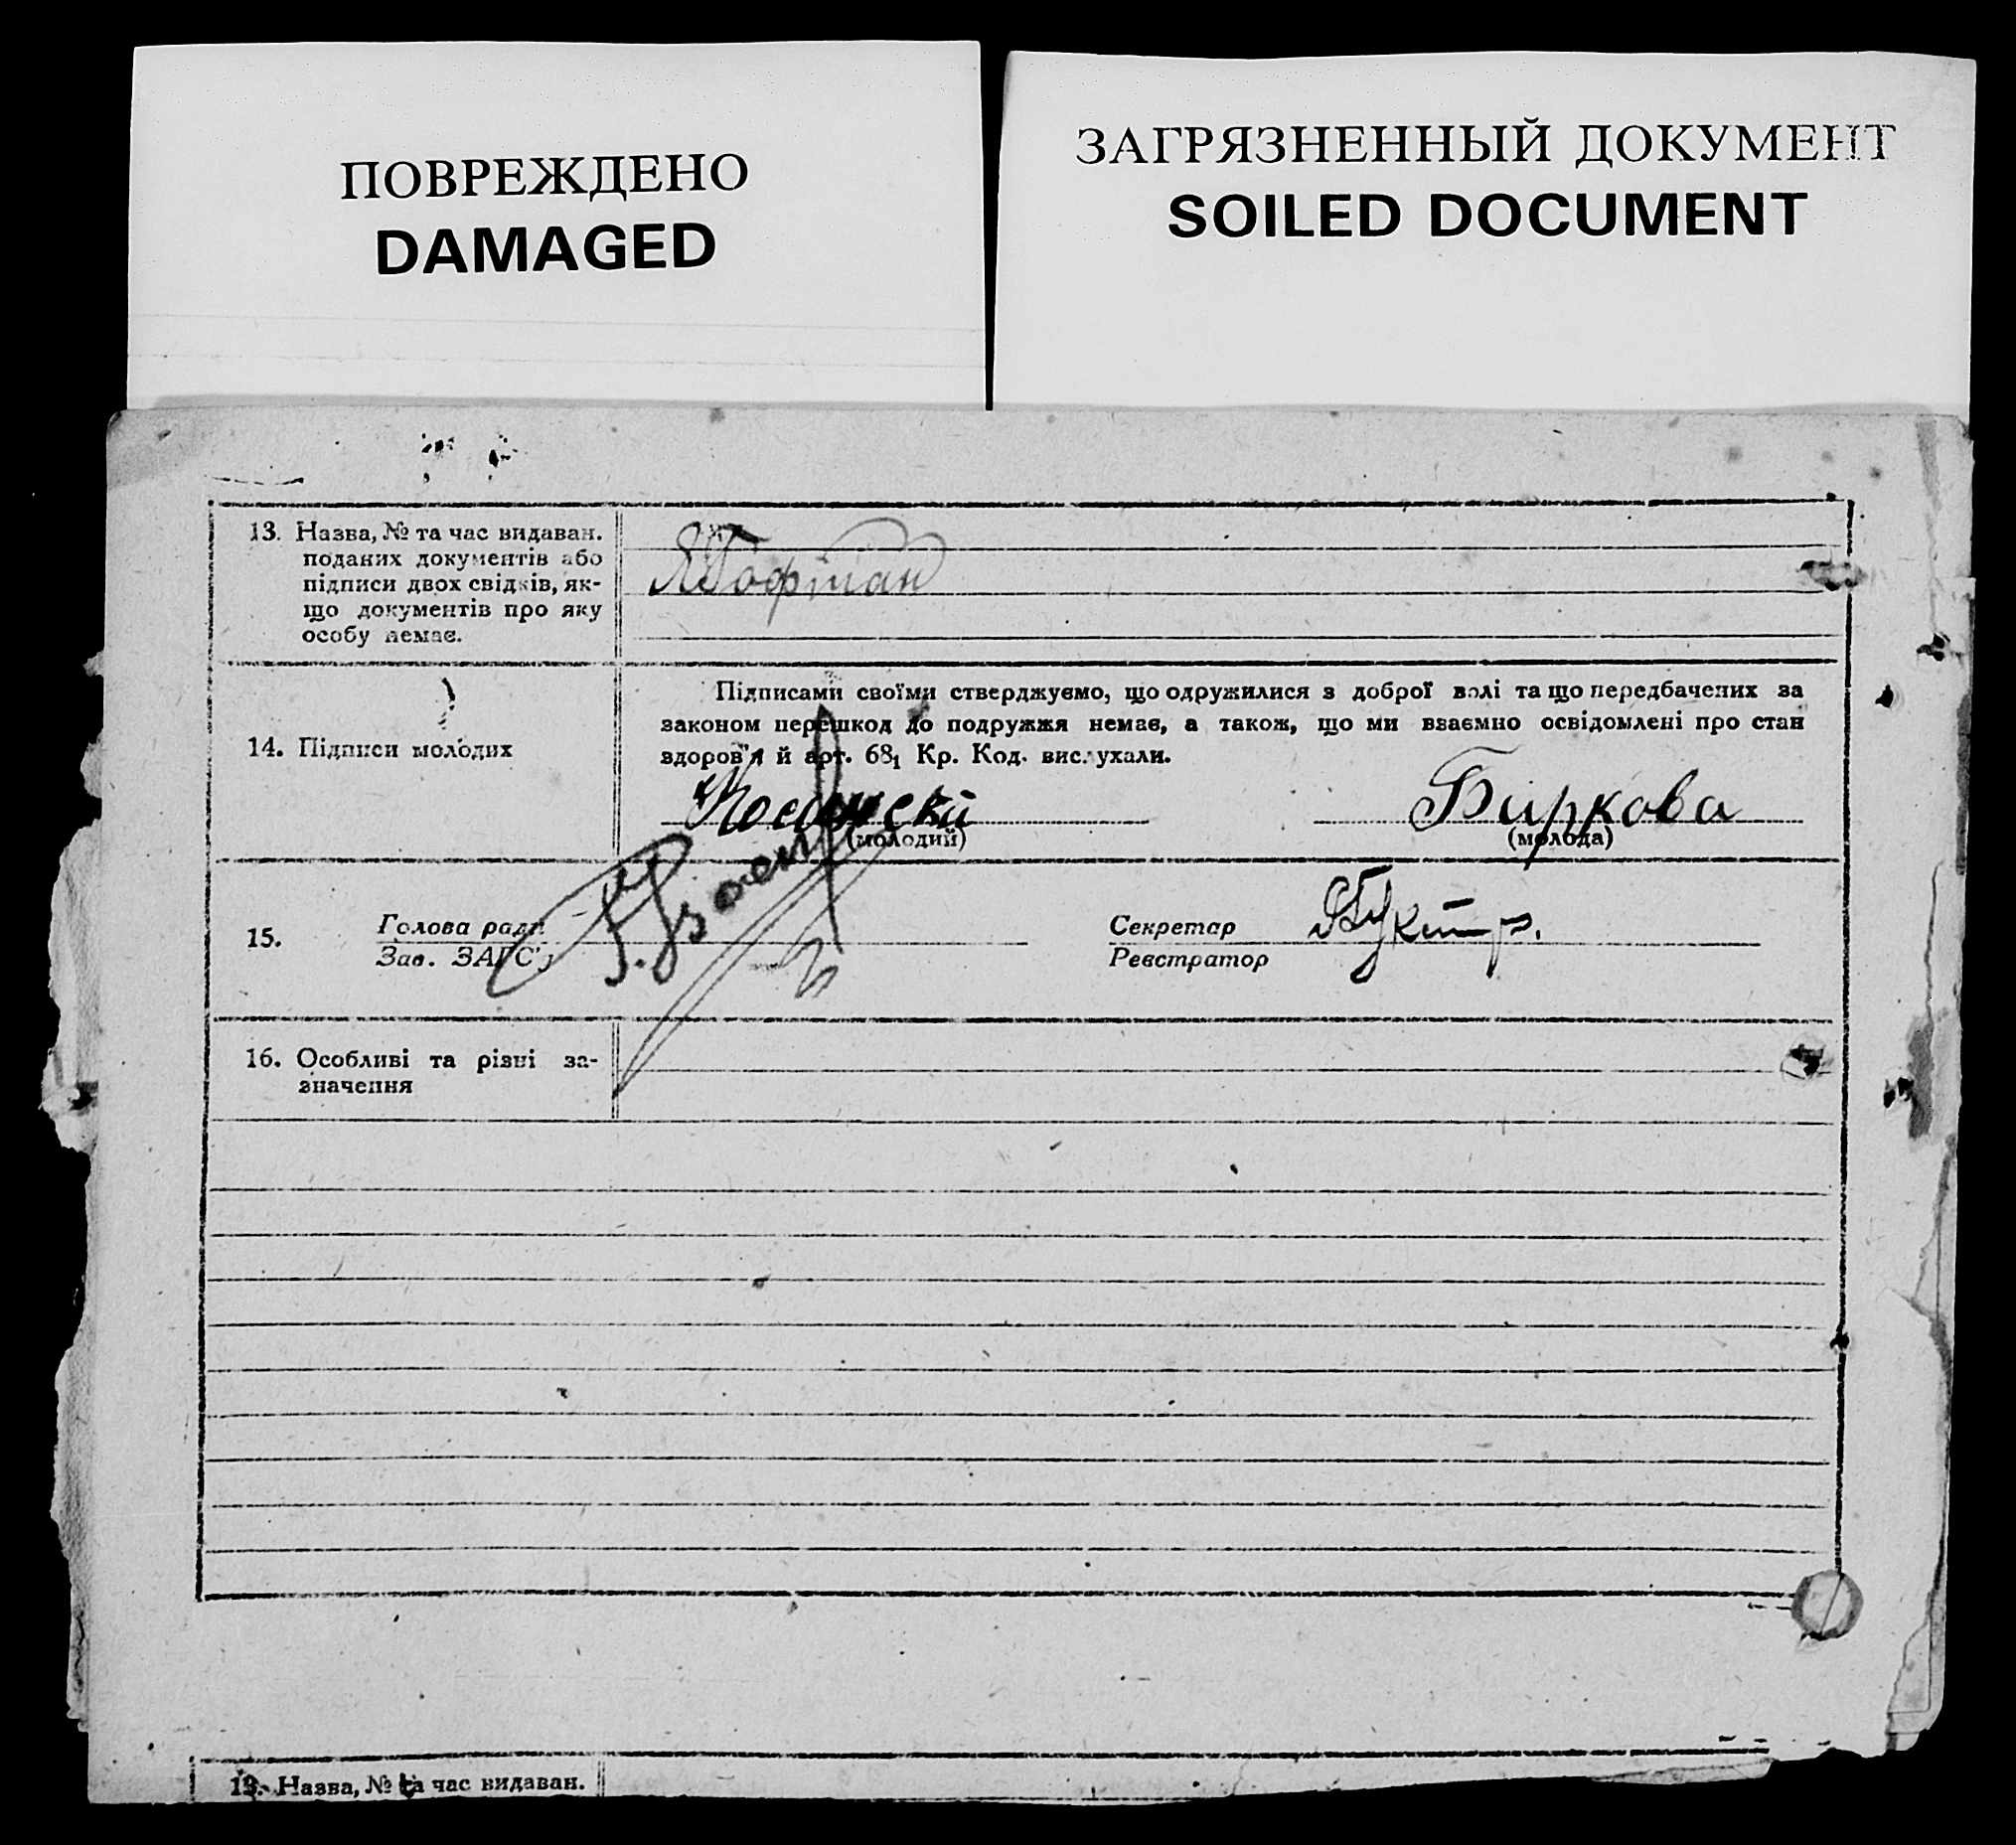 ПОВРЕЖДЕНО
DAMAGED
ЗАГРЯЗНЕННЫЙ ДОКУМЕНТ
SOILED DOCUMENT
13. Назва, № та час видаван.
поданих документів або
підписи двох свідків, як-
що документів про яку
особу немає.
Гофман
14. Підписи молодих
Підписами своїми стверджуємо, що одружилися з доброї волі та що передбачених за
законом перешкод до подружжя немає, а також, що ми взаємно освідомлені про стан
здоров'я й арт. 68₁ Кр. Код. вислухали.
Биркова
(молодий)
(молода)
15.
Голова ради
Зав. ЗАГС'у
Секретар
Реєстратор
16. Особливі та різні за-
значення
13. Назва, № та час видаван.